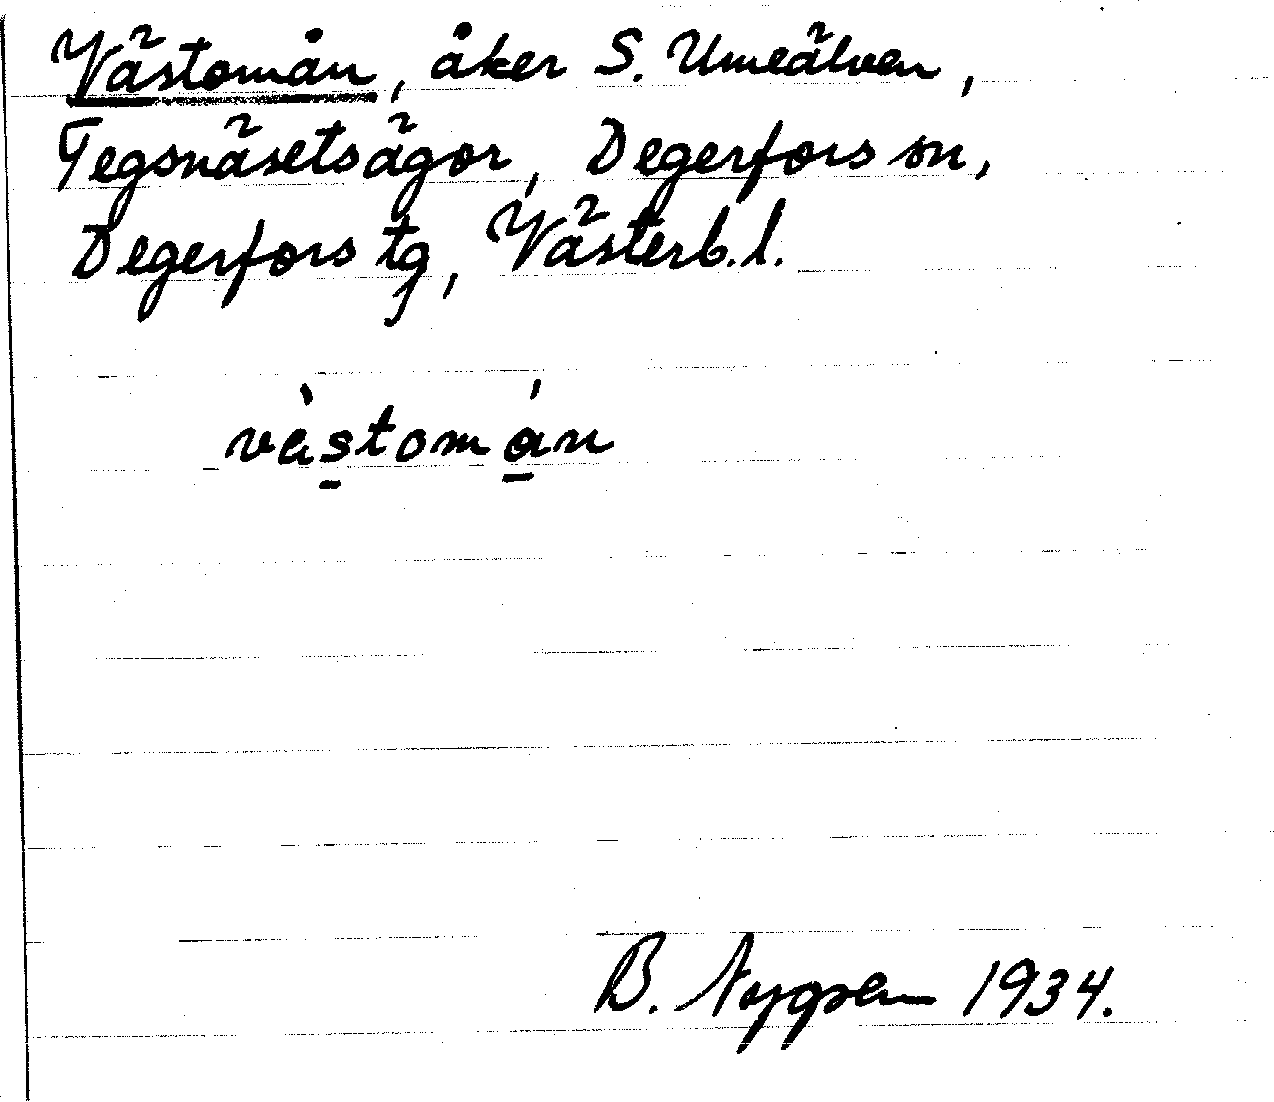 Västomån, åker S. Umeälven,
Tegsnäsets ägor, Degerfors sn,
Degerfors tg, Västerb. l.
vàstomán
B. 1934.